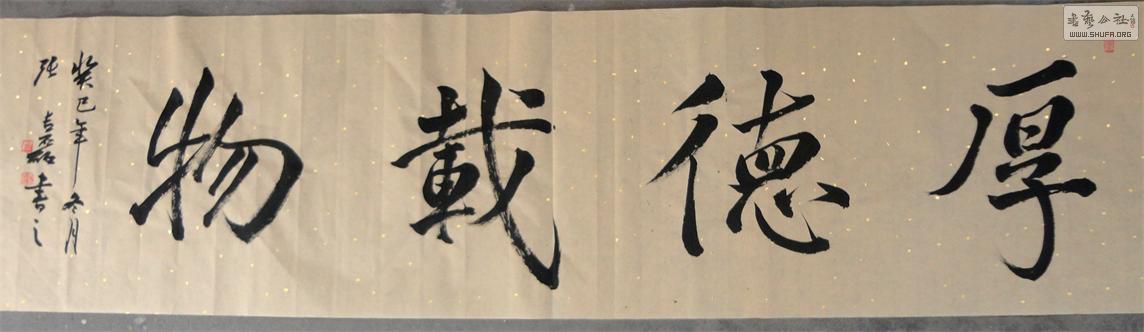 厚德載物
癸巳年冬月
张磊書之
書藝公社
WWW.SHUFA.ORG